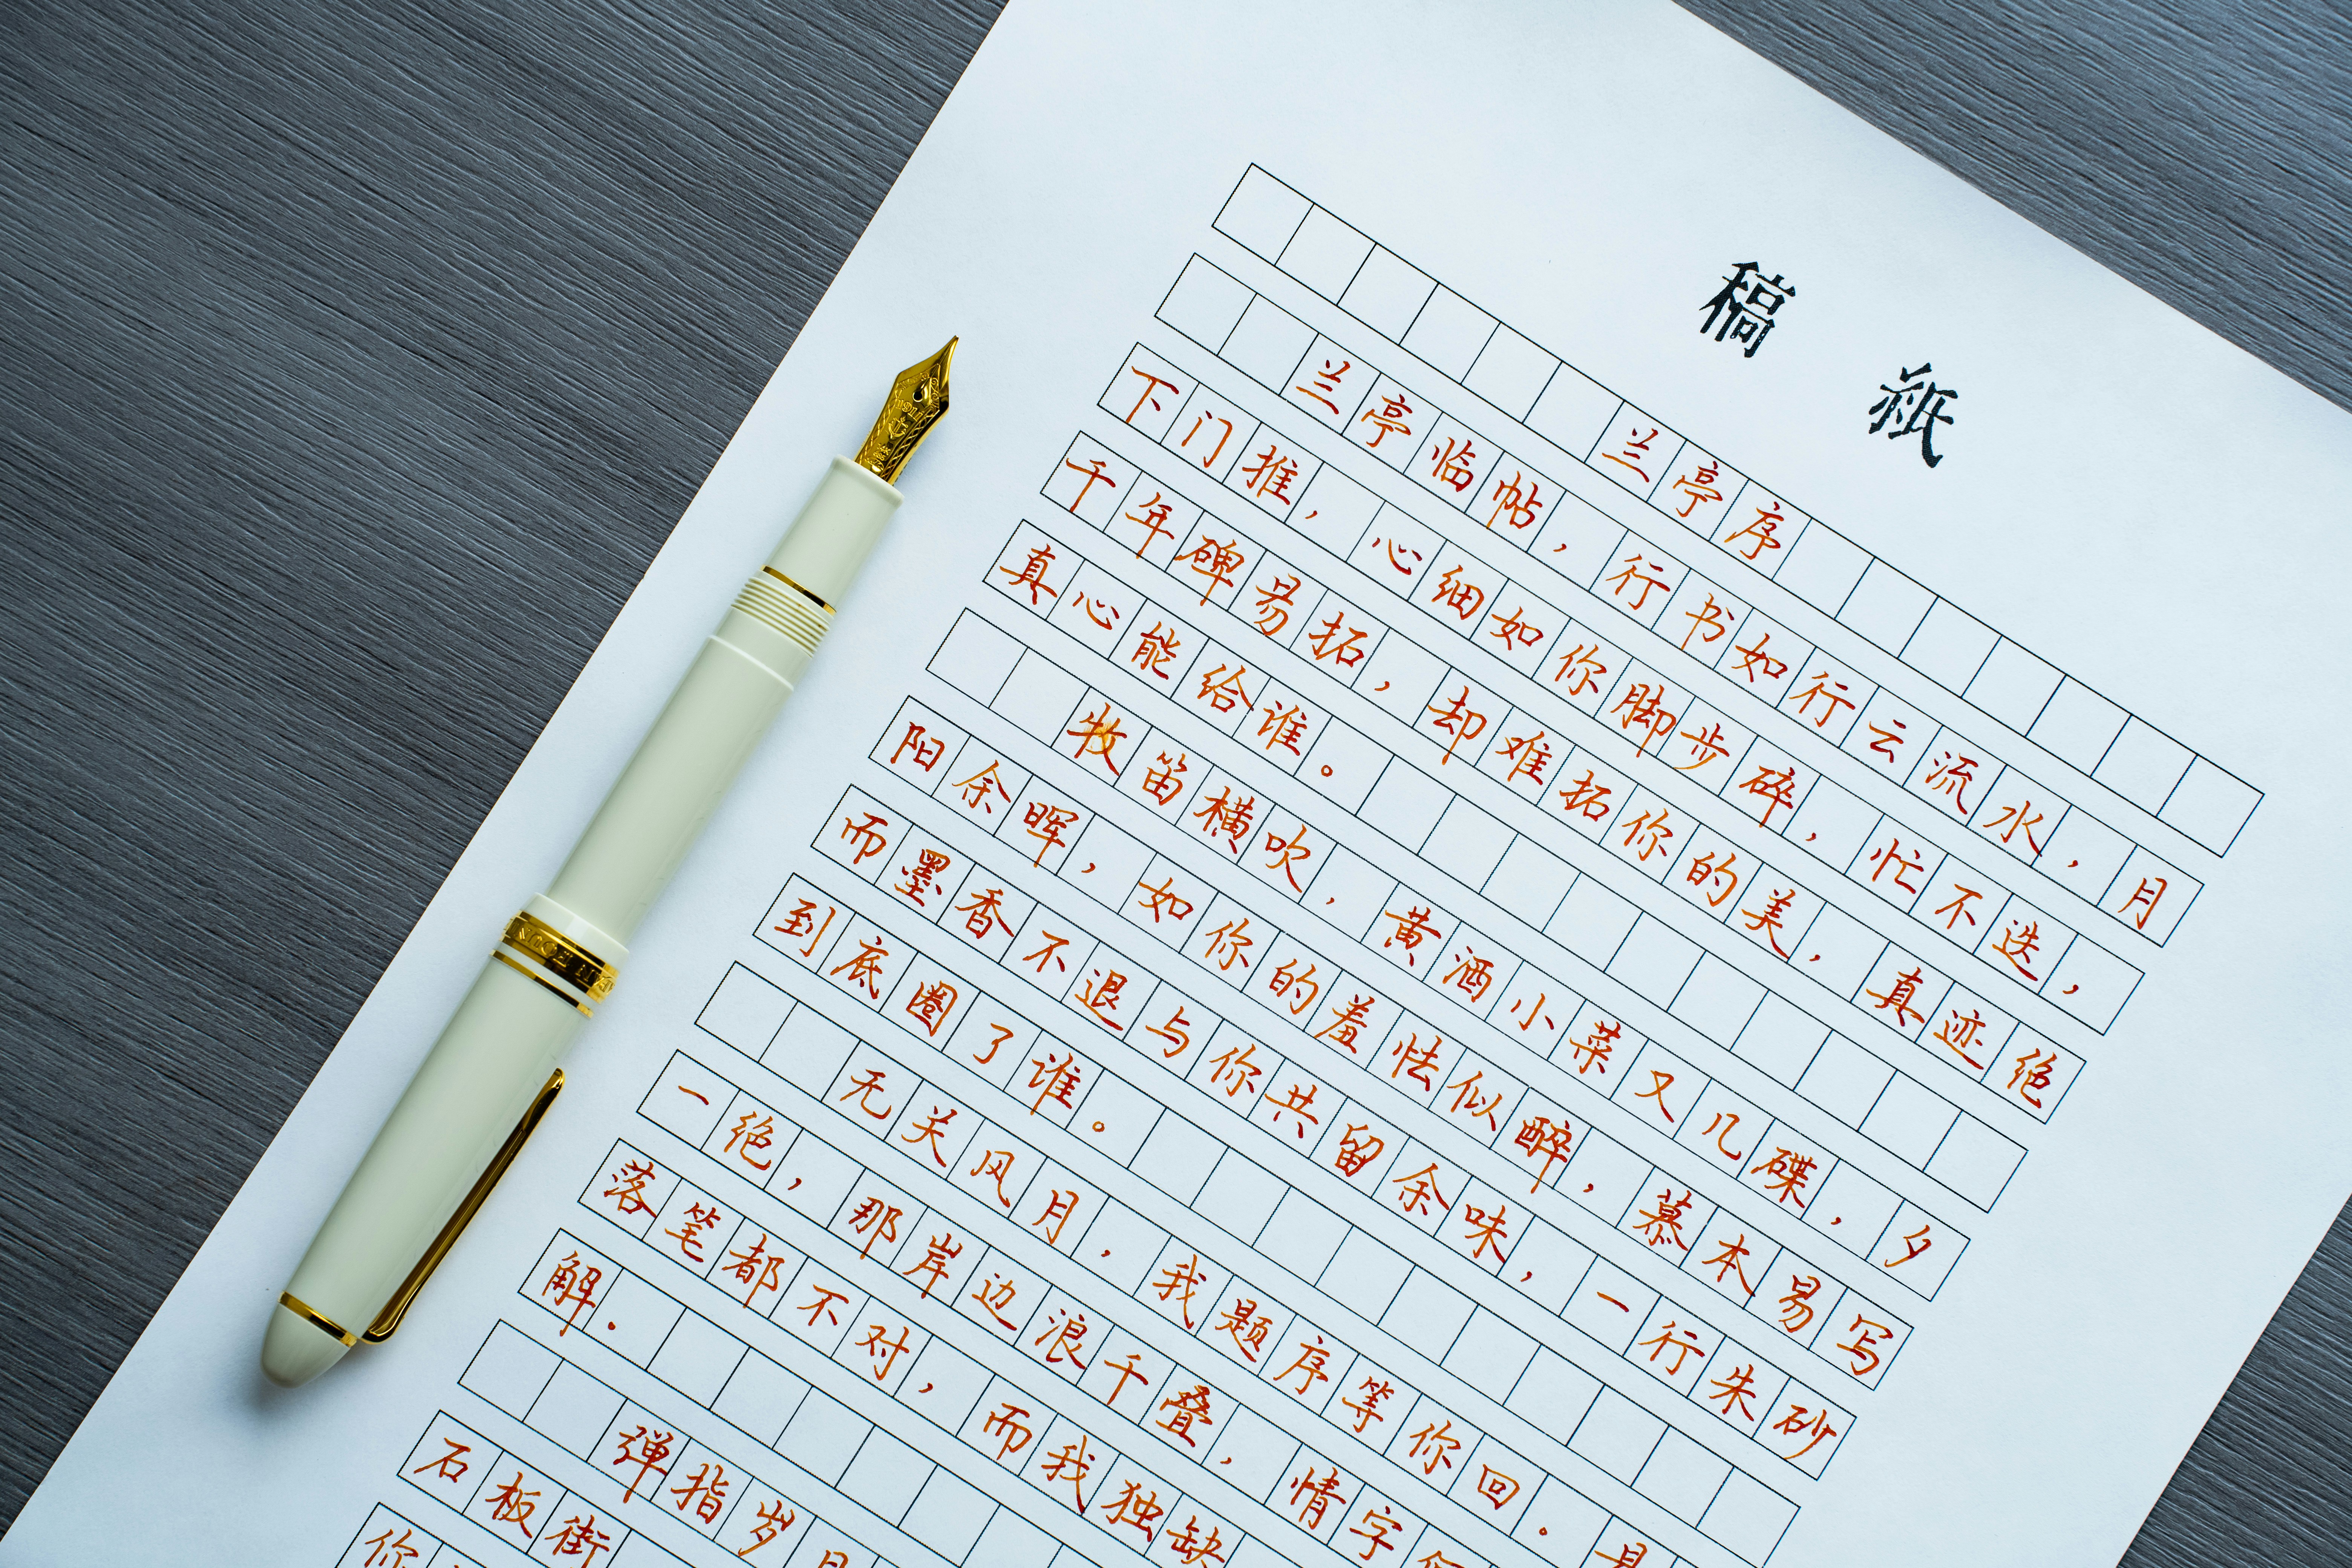 稿紙
兰亭序
兰亭临帖，行书如行云流水，月
下门推，心细如你脚步碎，忙不迭，
千年碑易拓，却难拓你的美，真迹绝
真心能给谁。
牧笛横吹，黄酒小菜又几碟，夕
阳余晖，如你的羞怯似醉，慕本易写
而墨香不退与你共留余味，一行朱砂
到底圈了谁。
无关风月，我题序等你回.
一绝，那岸边浪千叠，情字
落笔都不对，而我独缺
解.
弹指岁月
石板街
你
1911